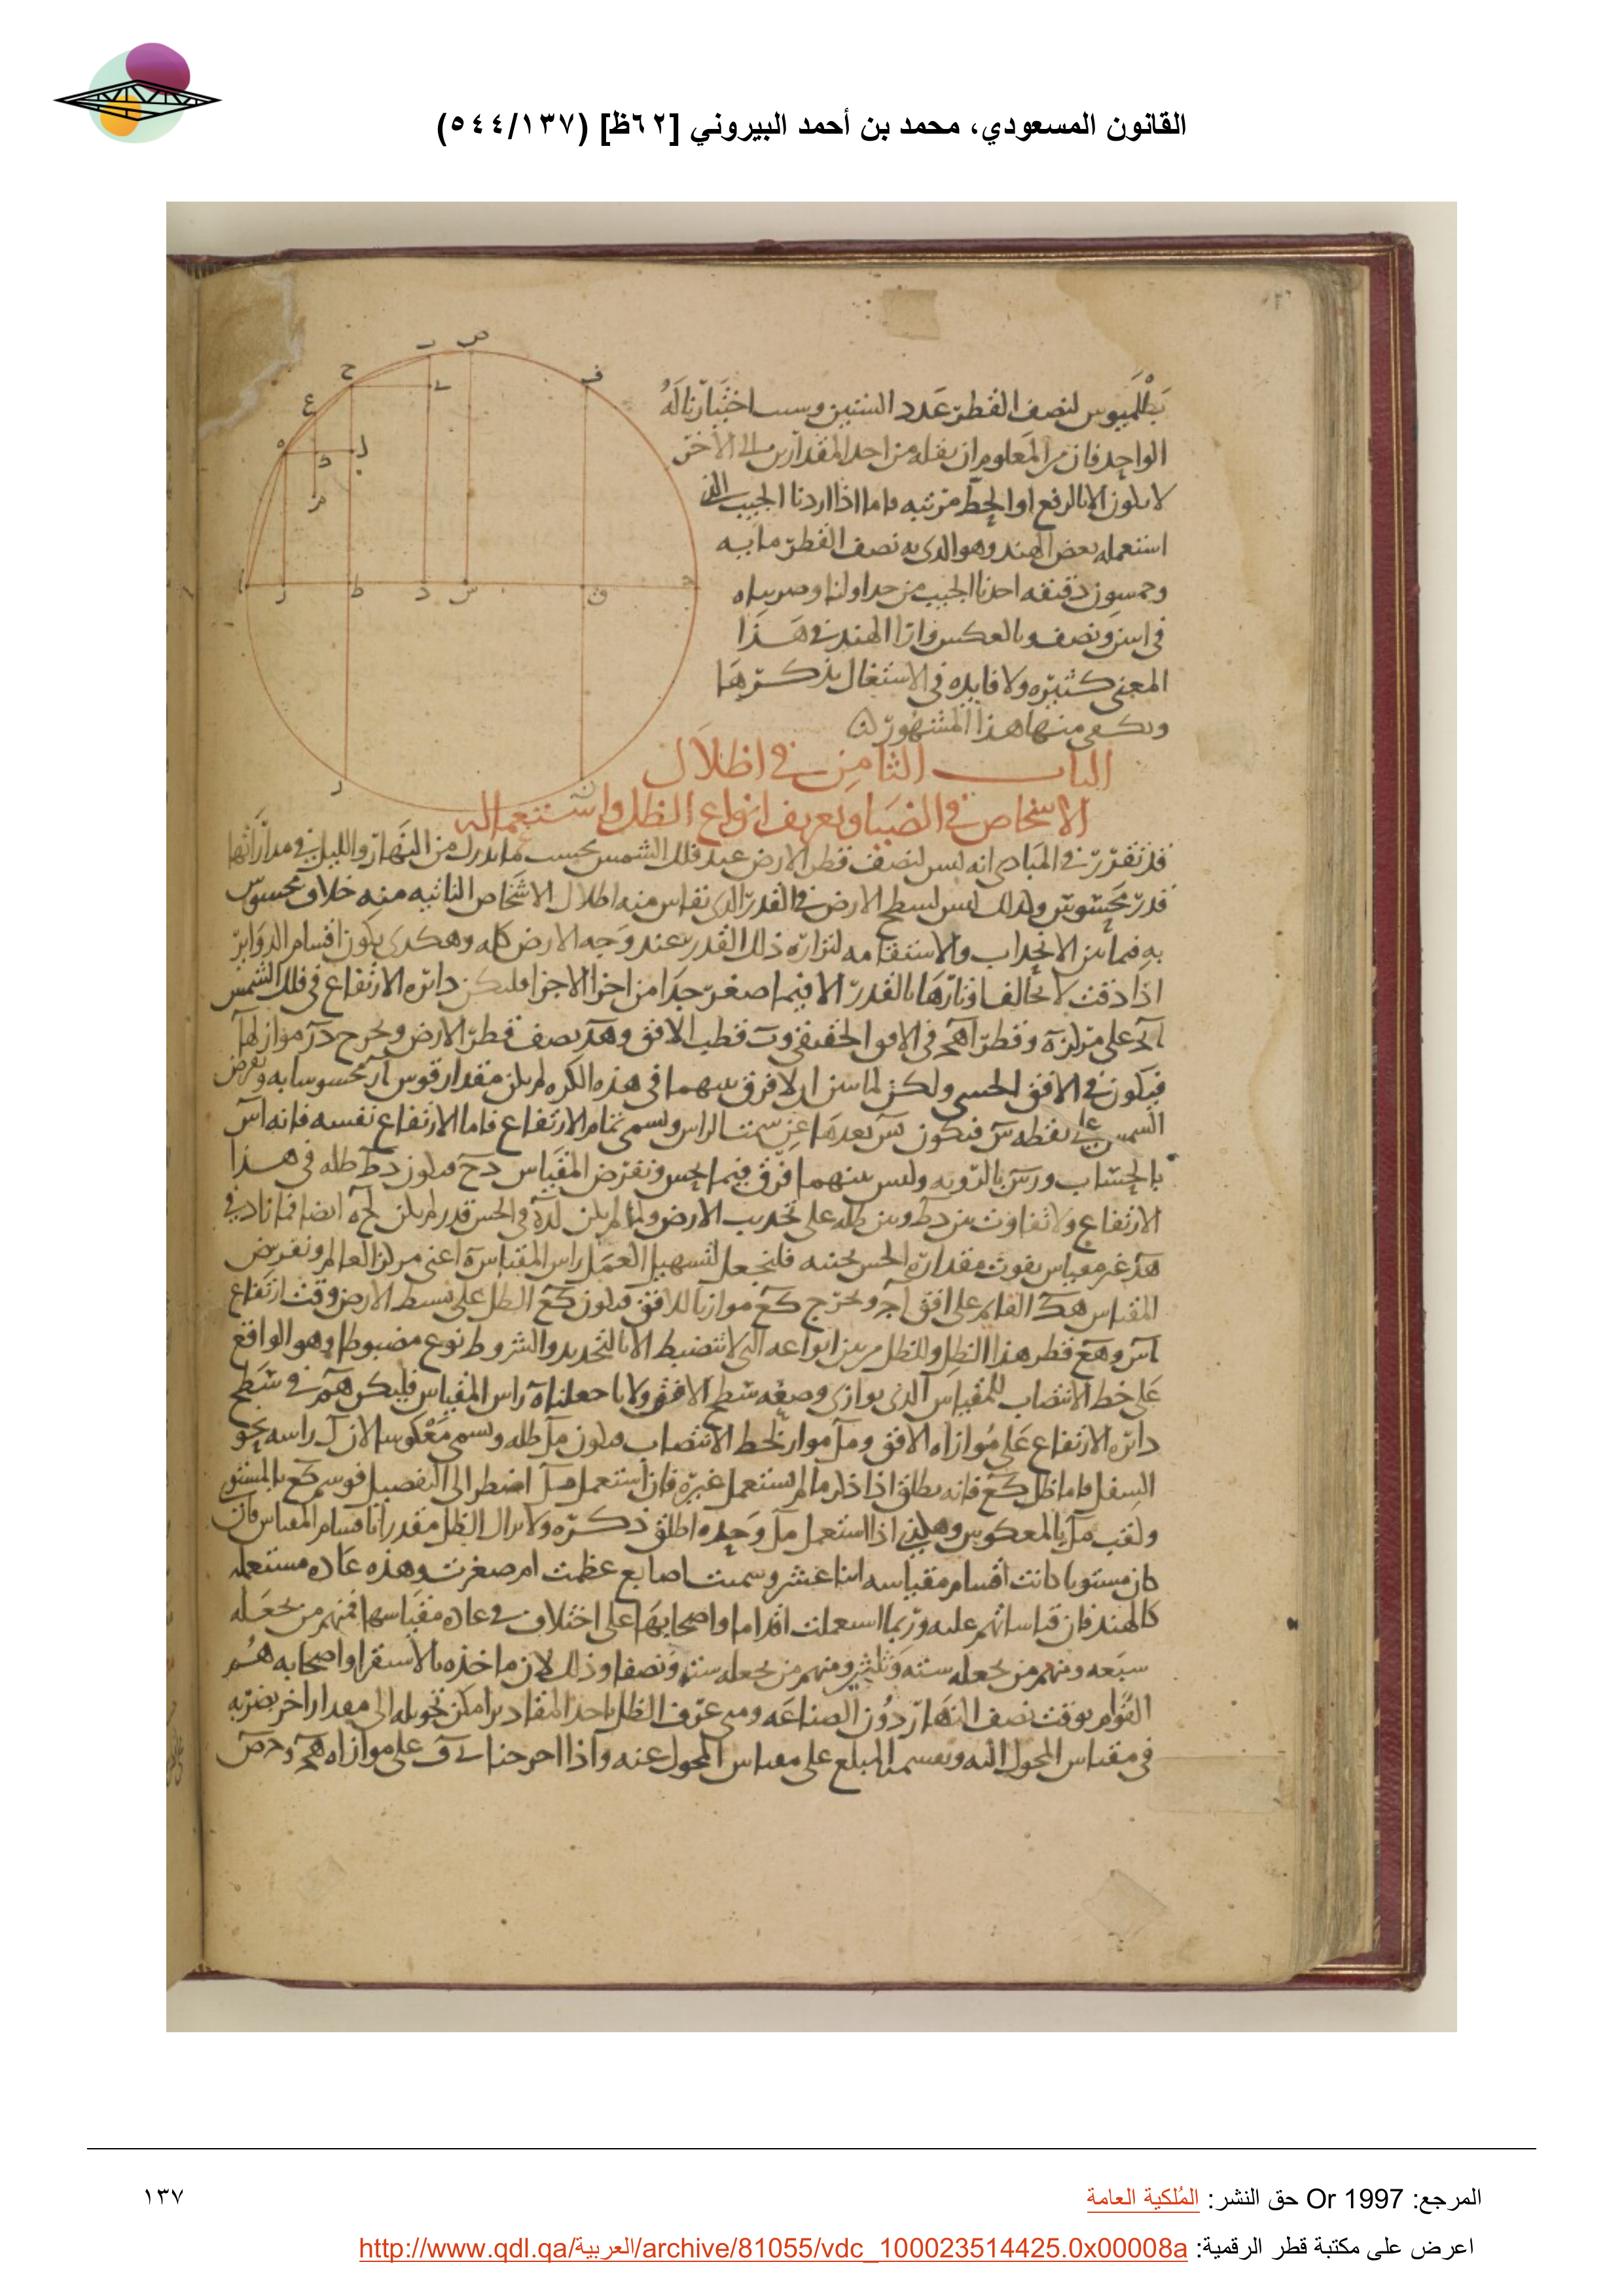 القانون المسعودي، محمد بن أحمد البيروني [٦٢ظ] (٥٤٤/١٣٧)
بطلميوس لنصف القطر عدد الستين وسبب اختيارنا له
الواحد فان من المعلوم ان نقله من احد المقدارين الى الاخر
لا يكون الا بالرفع او الحط مرتبه فاما اذا اردنا الجيب الذى
استعمله بعض الهند وهو الذى به نصف القطر مايه
وخمسون دقيقه اخذنا الجيب من جداولنا وضربناه
فى اثنين ونصف وبالعكس وارا الهند فى هذا
المعنى كثيره ولا فايده فى الاشتغال بذكرها
ويكفى منها هذا المشهور
الباب الثامن فى اظلال
الاشخاص فى الضيا وتعريف انواع الظل واستعماله
قد تقرر فى المبادى انه ليس لنصف قطر الارض عند فلك الشمس بحسب ما يدرك من النهار والليل فى مداراتها
قدر محسوس ولذلك ليس لسطح الارض فى القدر الذى تقاس منه اظلال الاشخاص الناتيه منه خلاف محسوس
به فيما بين الانحداب والاستقامه لنزاره ذلك القدر عند وجه الارض كله وهكذى يكون اقسام الدواير
اذا دقت لا تخالف اوتارها بالقدر الا فيما صغر جدا من اجزا الاجزا فليكن دائره الارتفاع فى فلك الشمس
ا على مركز ه وقطر اهج فى الافق الحقيقى و ب قطب الافق و هد نصف قطر الارض ونخرج در موازيا لها
فيكون فى الافق الحسى ولكن لما بين ان لا فرق بينهما فى هذه الكره لم يكن مقدار قوس ار محسوسا به ونفرض
الشمس على نقطه س فيكون بس بعدها عن سمت الراس ويسمى تمام الارتفاع فاما الارتفاع نفسه فانه اس
بالحساب و رس بالرويه وليس بينهما فرق فيما يحس ونفرض المقياس دح فيكون دط ظله فى هذا
الارتفاع ولا تفاوت بين دط وبين ظله على تحديب الارض ولما لم يكن لده فى الحس قدر لم يكن لحه ايضا فما زاد فى
هد غير مقياس يفوت مقداره الحس بجنبه فلنجعل لتسهيل العمل راس المقياس ه اعنى مركز العالم ونفرض
المقياس هك القايم على افق اج ونخرج كع موازيا للافق فيكون كع الظل على بسيط الارض وقت ارتفاع
اس و هع قطر هذا الظل وللظل من بين انواعه التى لا تنضبط الا بالتحديد والشروط نوع مضبوط وهو الواقع
على خط الانتصاب للمقياس الذى يوازى وضعه سطح الافق ولانا جعلنا ه راس المقياس فليكن هم فى سطح
دائره الارتفاع على موازاه الافق و مل مواز لخط الانتصاب فيكون مل ظله ويسمى معكوسا لان ل راسه نحو
السفل فاما ظل كع فانه يطلق اذا ذكر ما لم يستعمل غيره فان استعمل مل اضطر الى التفصيل فوسم كع بالمستوى
ولقب مل بالمعكوس وهكذى اذا استعمل مل وحده اطلق ذكره ولا يزال الظل مقدرا باقسام المقياس فان
كان مستويا كانت اقسام مقياسه اثنا عشر وسميت اصابع عظمت ام صغرت وهذه عاده مستعمله
كالهند فان قياساتهم عليه وربما استعملت اقداما واصحابها على اختلاف فى عاده مقياسها فمنهم من يجعله
سبعه ومنهم من يجعله سته وثلثين ومنهم من يجعله سته ونصفا وذلك لان ماخذه بالاستقرا واصحابه هم
القوام بوقت نصف النهار دون الصناعه ومتى عرف الظل باحد المقادير امكن تحويله الى مقدار اخر بضربه
فى مقياس المحول اليه ويقسم المبلغ على مقياس المحول عنه واذا اخرجنا
المرجع: Or 1997 حق النشر: المُلكية العامة
١٣٧
اعرض على مكتبة قطر الرقمية: http://www.qdl.qa/العربية/archive/81055/vdc_100023514425.0x00008a